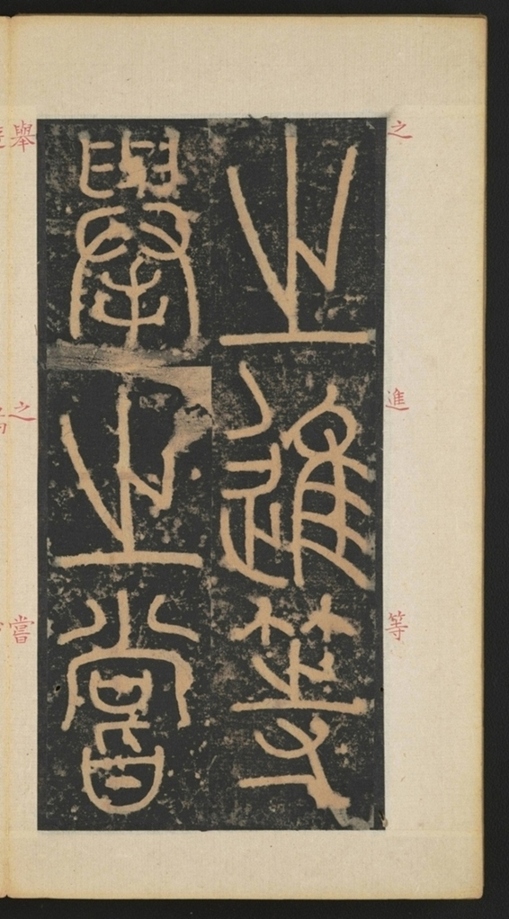 之進等
之進等
舉之嘗
舉之嘗